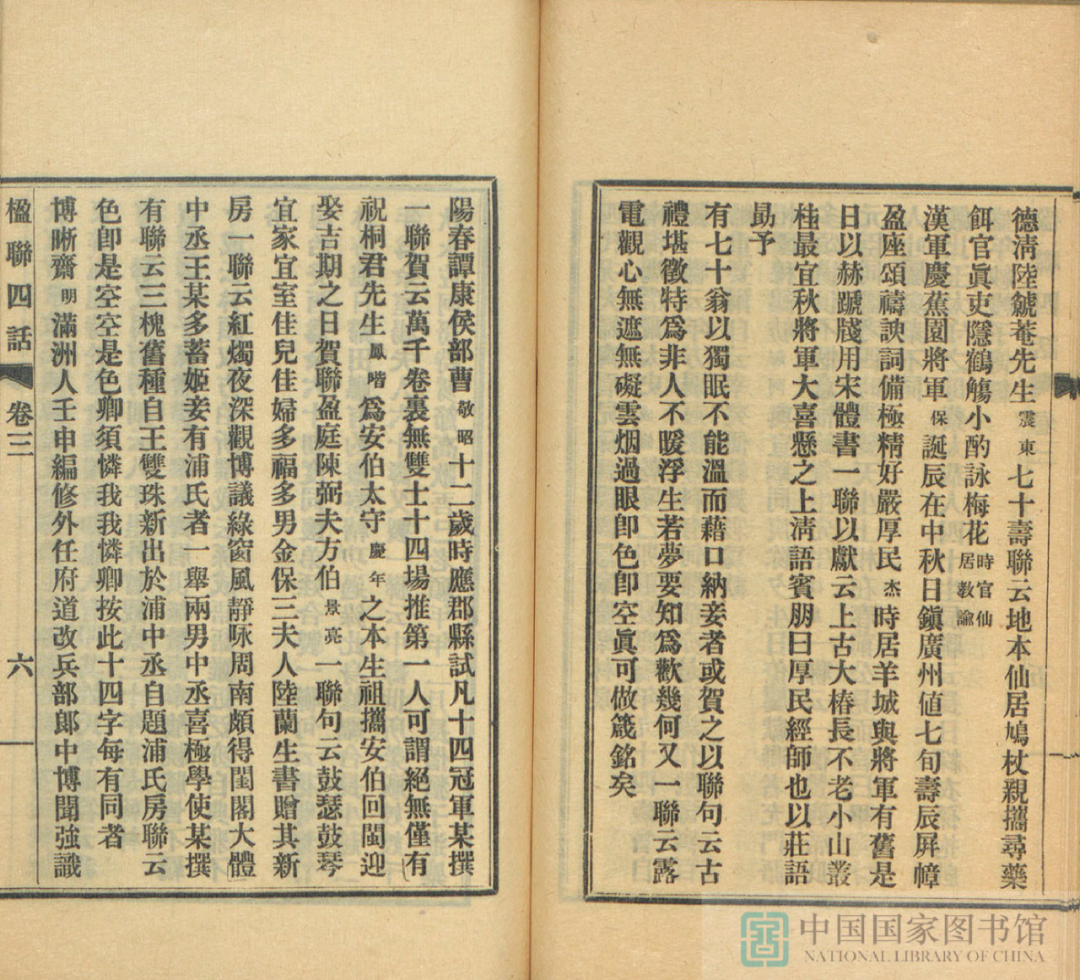 德淸陸虩菴先生震東七十壽聯云地本仙居鳩杖親攜尋藥
餌官眞吏隱鶴觴小酌詠梅花時官仙居敎諭
漢軍慶蕉園將軍保誕辰在中秋日鎭廣州値七旬壽辰屏幛
盈座頌禱諛詞備極精好嚴厚民杰時居羊城與將軍有舊是
日以赫蹏牋用宋體書一聯以獻云上古大椿長不老小山叢
桂最宜秋將軍大喜懸之上淸語賓朋曰厚民經師也以莊語
勗予
有七十翁以獨眠不能溫而藉口納妾者或賀之以聯句云古
禮堪徵特爲非人不暖浮生若夢要知爲歡幾何又一聯云露
電觀心無遮無礙雲烟過眼卽色卽空眞可做箴銘矣
陽春譚康侯部曹敬昭十二歲時應郡縣試凡十四冠軍某撰
一聯賀云萬千卷裏無雙士十四場推第一人可謂絕無僅有
祝桐君先生鳳喈爲安伯太守慶年之本生祖攜安伯回閩迎
娶吉期之日賀聯盈庭陳弼夫方伯景亮一聯句云鼓瑟鼓琴
宜家宜室佳兒佳婦多福多男金保三夫人陸蘭生書贈其新
房一聯云紅燭夜深觀博議綠窗風靜咏周南頗得閨閣大體
中丞王某多蓄姬妾有浦氏者一舉兩男中丞喜極學使某撰
有聯云三槐舊種自王雙珠新出於浦中丞自題浦氏房聯云
色卽是空空是色卿須憐我我憐卿按此十四字每有同者
博晰齋明滿洲人壬申編修外任府道改兵部郞中博聞強識
楹聯四話 卷三 六
中国国家图书馆
NATIONAL LIBRARY OF CHINA